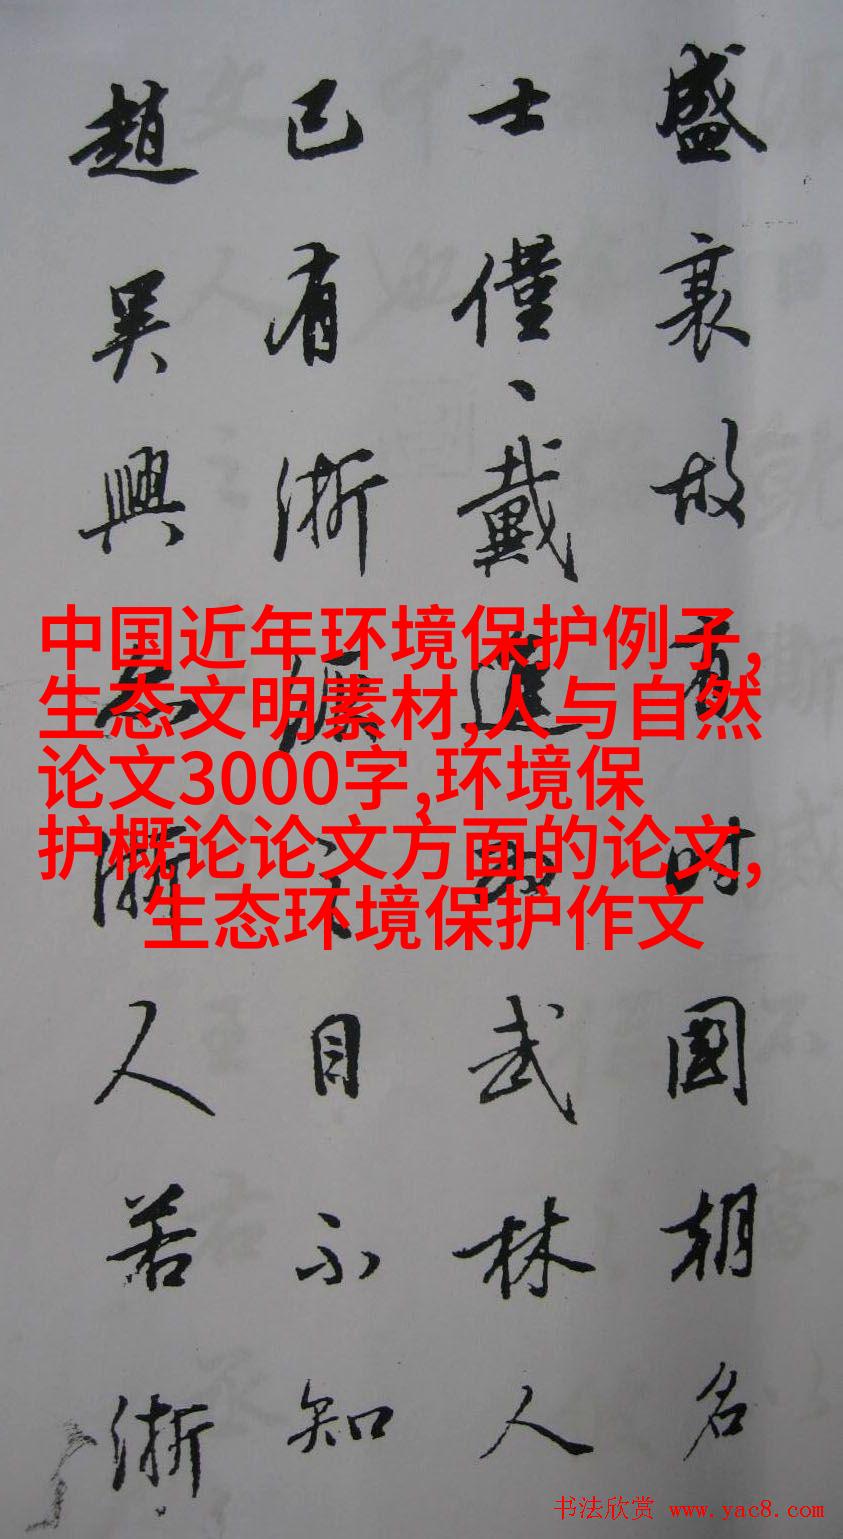 盛衰故有时國朝名
士僅、戴進為武林人
已有浙派之目不知
趙吳興亦浙人若浙
中国近年环境保护例子,
生态文明素材,人与自然
论文3000字,环境保
护概论论文方面的论文,
生态环境保护作文
书法欣赏 www.yac8.com